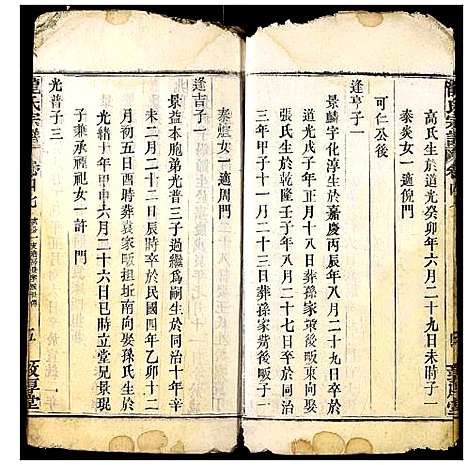 高氏生於道光癸卯年六月二十九日未時子一
泰炎女一適倪門
可仁公後
逢亨子一
景麟字化淳生於嘉慶丙辰年八月二十二日歿於
道光戊子年正月十八日葬孫家壪後畈東向娶
張氏生於乾隆壬子年八月二十七日卒於同治
三年甲子十一月二十三日葬孫家壪後畈子一
泰煊女一適周門
逢吉子一
景益本胞弟光普三子過繼爲嗣生於同治十年辛
未二月二十二日辰時卒於民國四年乙卯十二
月初五日酉時葬袁家畈祖坵南向娶孫氏生於
光緒 甲申六月二十六日巳時立堂兄景琨
子兼承禋祀女一 許 門
光普子三
龍氏宗譜
卷四七
五 敦厚堂